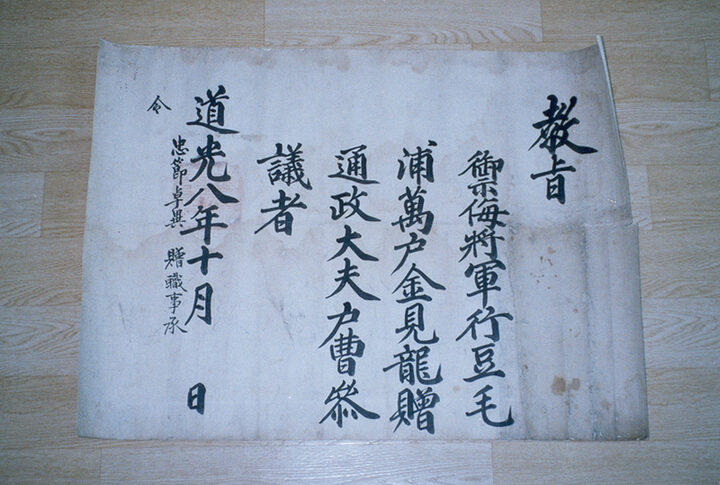 敎旨
禦侮將軍行豆毛
浦萬戶金見龍贈
通政大夫戶曹叅
議者
道光八年十月 日
忠節卓異 贈職事承
令